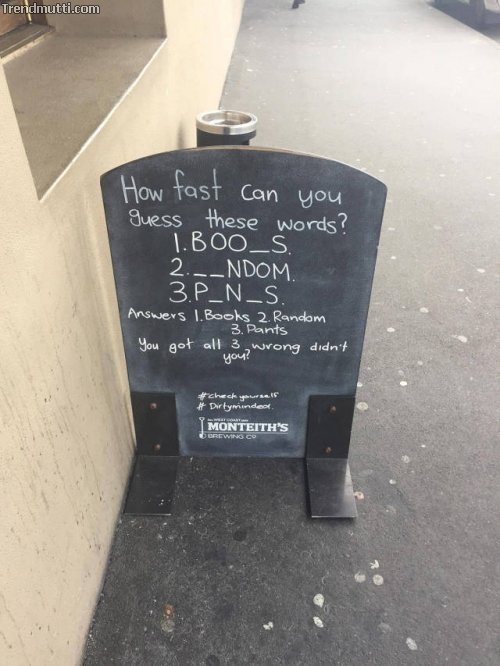 Trendmutti.com
How fast can you
guess these words?
1. BOO_S.
2. __NDOM.
3. P_N_S.
Answers 1. Books 2. Random
3. Pants
You got all 3 wrong didn't
you?
#checkyourself
# Dirtyminded.
MONTEITH'S
BREWING CO